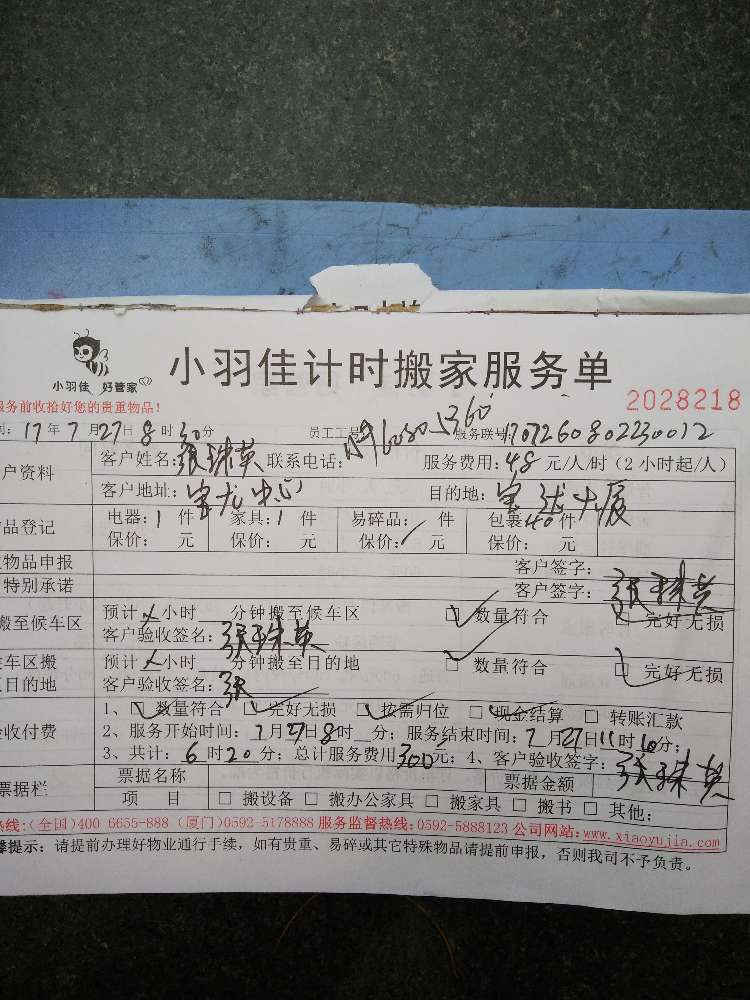 小羽佳 好管家
小羽佳计时搬家服务单
服务前收拾好您的贵重物品！
2028218
间：17年7月27日8时30分 员工工号 服务联号1707260802230012
户资料 客户姓名：张珠英 联系电话： 服务费用：48元/人/时（2小时起/人）
客户地址：宝龙中心 目的地：宝达大厦
品登记 电器：1件 家具：1件 易碎品：/件 包裹40件
保价： 元 保价： 元 保价： 元 保价： 元
物品申报 客户签字：
特别承诺 客户签字：张珠英
搬至候车区 预计 小时 分钟搬至候车区 ☑数量符合 ☑完好无损
客户验收签名：张珠英
车区搬 预计 小时 分钟搬至目的地 ☑数量符合 ☑完好无损
目的地 客户验收签名：张
收付费 1、☑数量符合 ☑完好无损 ☑按需归位 ☑现金结算 □转账汇款
2、服务开始时间：7月27日8时 分；服务结束时间：7月27日11时10分；
3、共计：6时20分；总计服务费用300元；4、客户验收签字：张珠英
票据栏 票据名称 票据金额
项 目 □搬设备 □搬办公家具 □搬家具 □搬书 □其他：
热线：（全国）400 6655-888（厦门）0592-5178888 服务监督热线：0592-5888123 公司网站：www.xiaoyujia.com
馨提示：请提前办理好物业通行手续，如有贵重、易碎或其它特殊物品请提前申报，否则我司不予负责。